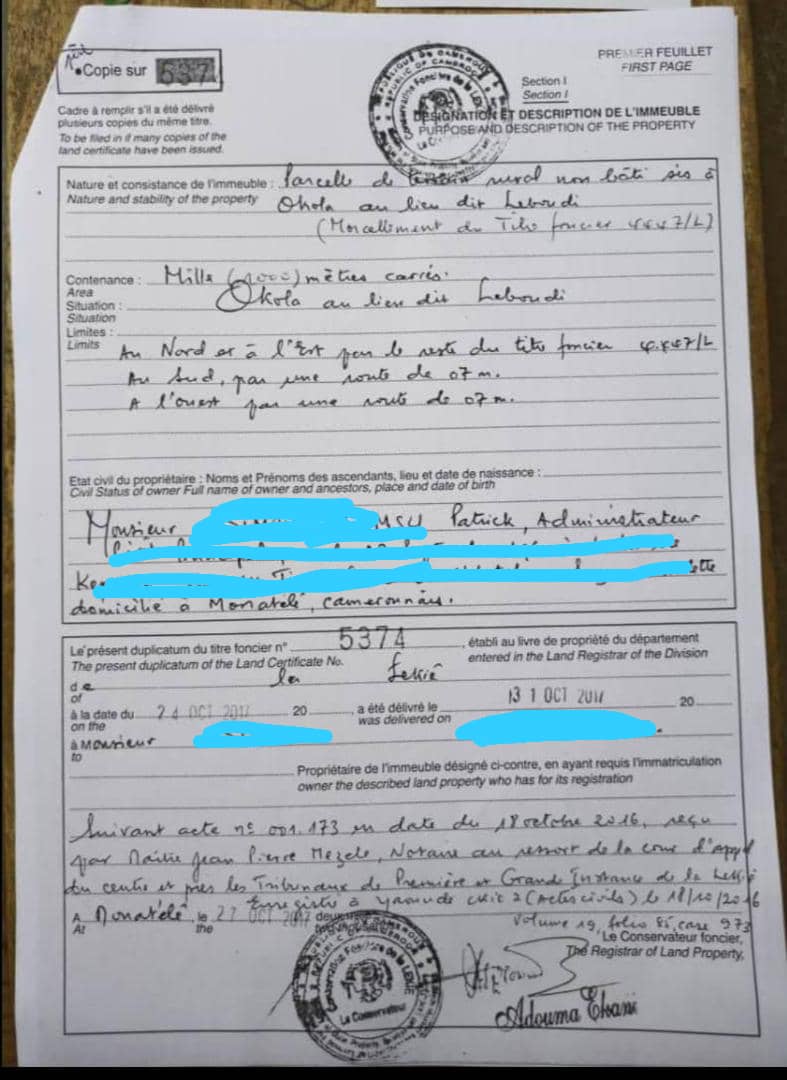 Copie sur 5374
PREMIER FEUILLET
FIRST PAGE
Section I
Section I
DESIGNATION ET DESCRIPTION DE L'IMMEUBLE
PURPOSE AND DESCRIPTION OF THE PROPERTY
Cadre à remplir s'il a été délivré
plusieurs copies du même titre.
To be filed in if many copies of the
land certificate have been issued.
REPUBLIQUE DU CAMEROUN
REPUBLIC OF CAMEROON
Conservation Foncière de la LEKIE
Nature et consistance de l'immeuble : Parcelle de terrain rural non bâti sis à
Nature and stability of the property Okola au lieu dit Leboudi
(Morcellement du Titre foncier 4447/L)
Contenance : Mille (1000) mètres carrés.
Area
Situation : Okola au lieu dit Leboudi
Situation
Limites :
Limits
Au Nord et à l'Est par le reste du titre foncier 4.447/L
Au Sud, par une route de 07 m.
A l'ouest par une route de 07 m.
Etat civil du propriétaire : Noms et Prénoms des ascendants, lieu et date de naissance :
Civil Status of owner Full name of owner and ancestors, place and date of birth
Monsieur Patrick, Administrateur
domicilié à Monatélé, camerounais.
Le présent duplicatum du titre foncier n° 5374, établi au livre de propriété du département
The present duplicatum of the Land Certificate No. entered in the Land Registrar of the Division
de la Lekié
of
à la date du 24 OCT 2017 20 , a été délivré le 31 OCT 2017 20
on the was delivered on
à Monsieur
to
Propriétaire de l'immeuble désigné ci-contre, en ayant requis l'immatriculation
owner the described land property who has for its registration
Suivant acte n° 001.173 en date du 18 octobre 2016, reçu
par Maître Jean Pierre Mezele, Notaire au ressort de la cour d'appel
du centre et près les Tribunaux de Première et Grande Instance de la Lekié
Enregistré à Yaoundé 2 (Actes civils) le 18/10/2016
Volume 19, folio 85, case 973
A Monatélé, le 27 OCT 2017
At the
Le Conservateur foncier,
The Registrar of Land Property,
Conservation Foncière de la LEKIE
Le Conservateur
Adouma Ekani